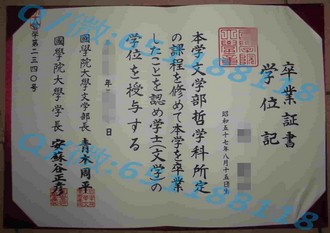 卒業証書
学位記
昭和五十七年八月十五日生
本学文学部哲学科所定
の課程を修めて本学を卒業
したことを認め学士(文学)の
学位を授与する
年 月 日
國學院大學文学部長 青木周平
國學院大學学長 安蘇谷正彦
第二三四〇号